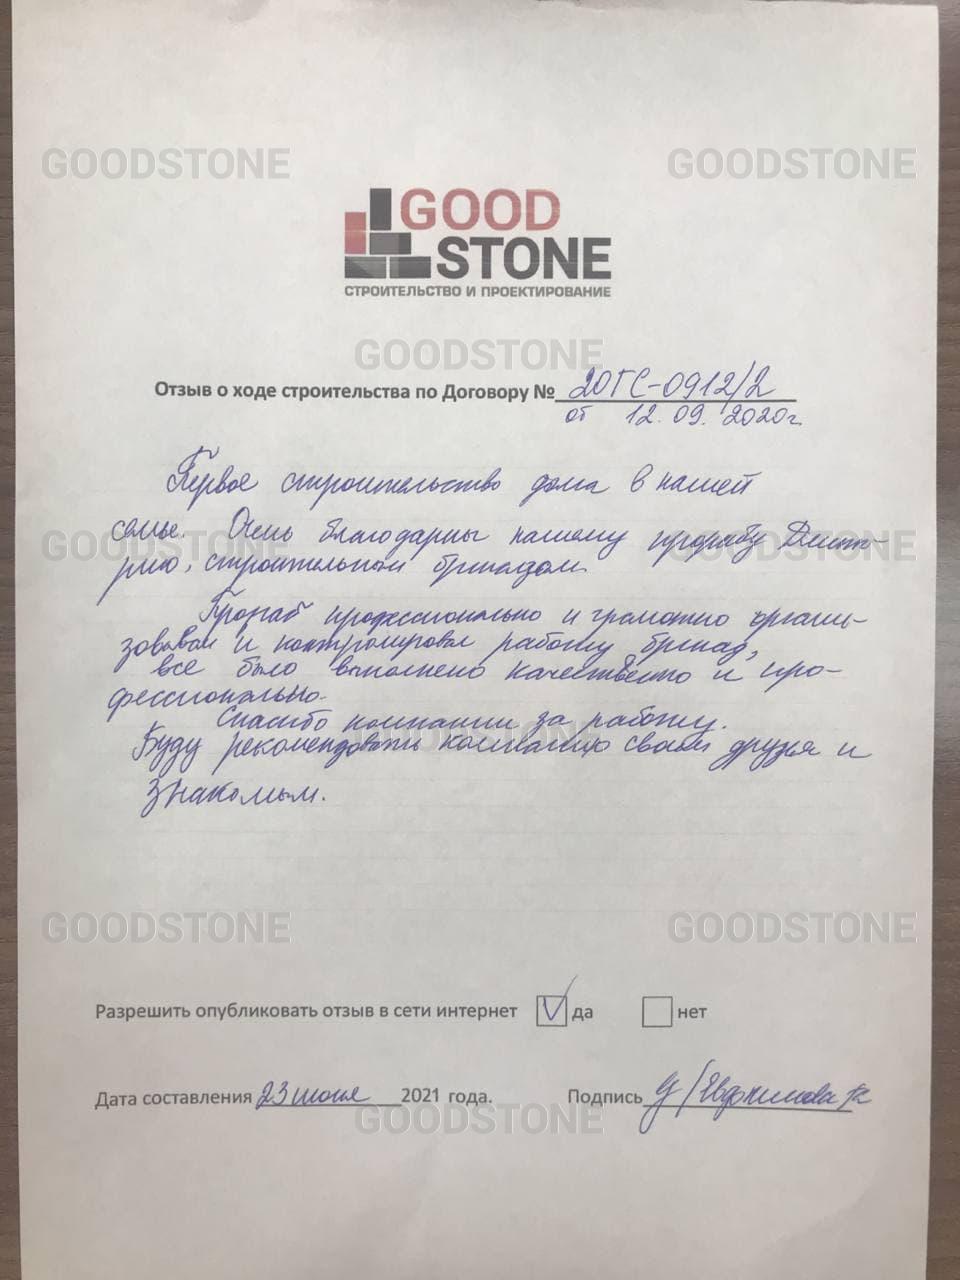 GOODSTONE GOODSTONE
GOOD
STONE
СТРОИТЕЛЬСТВО И ПРОЕКТИРОВАНИЕ
GOODSTONE
Отзыв о ходе строительства по Договору № 20ГС-0912/2
от 12.09.2020г.
Первое строительство дома в нашей
семье. Очень благодарны нашему прорабу Дмит-
GOODSTONE GOODSTONE
рию, строительным бригадам.
Прораб профессионально и грамотно органи-
зовывал и контролировал работу бригад,
все было выполнено качественно и про-
фессионально.
Спасибо компании за работу.
GOODSTONE
Буду рекомендовать компанию своим друзья и
знакомым.
GOODSTONE GOODSTONE
Разрешить опубликовать отзыв в сети интернет V да нет
Дата составления 23 июня 2021 года. Подпись Евдокимова
GOODSTONE